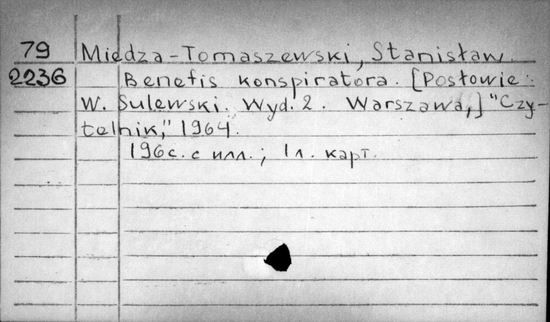 79 Miedza-Tomaszewski, Stanisław.
2236 Benefis konspiratora. [Posłowie:
W. Sulewski. Wyd. 2. Warszawa,] "Czy-
telnik," 1964.
196 с. с илл.; 1 л. карт.